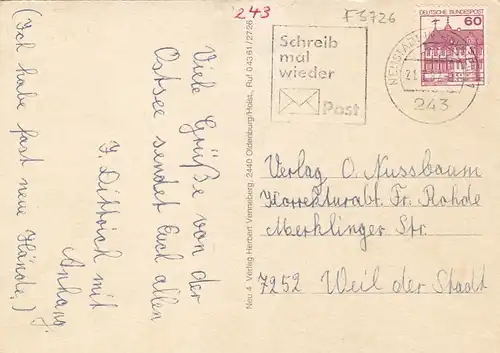 243
F 3726
Schreib
mal
wieder
Post
DEUTSCHE BUNDESPOST
60
NEUSTADT
21.
243
Viele Grüße von der
Ostsee sendet Euch allen
J. Dittrich mit
Anhang.
(Ich habe fast neue Hände!)
Neu 4 Verlag Herbert Venneberg, 2440 Oldenburg/Holst., Ruf 0 43 61 / 27 26
Verlag O. Nussbaum
Korrekturabt. Fr. Rohde
Merklinger Str.
7252 Weil der Stadt